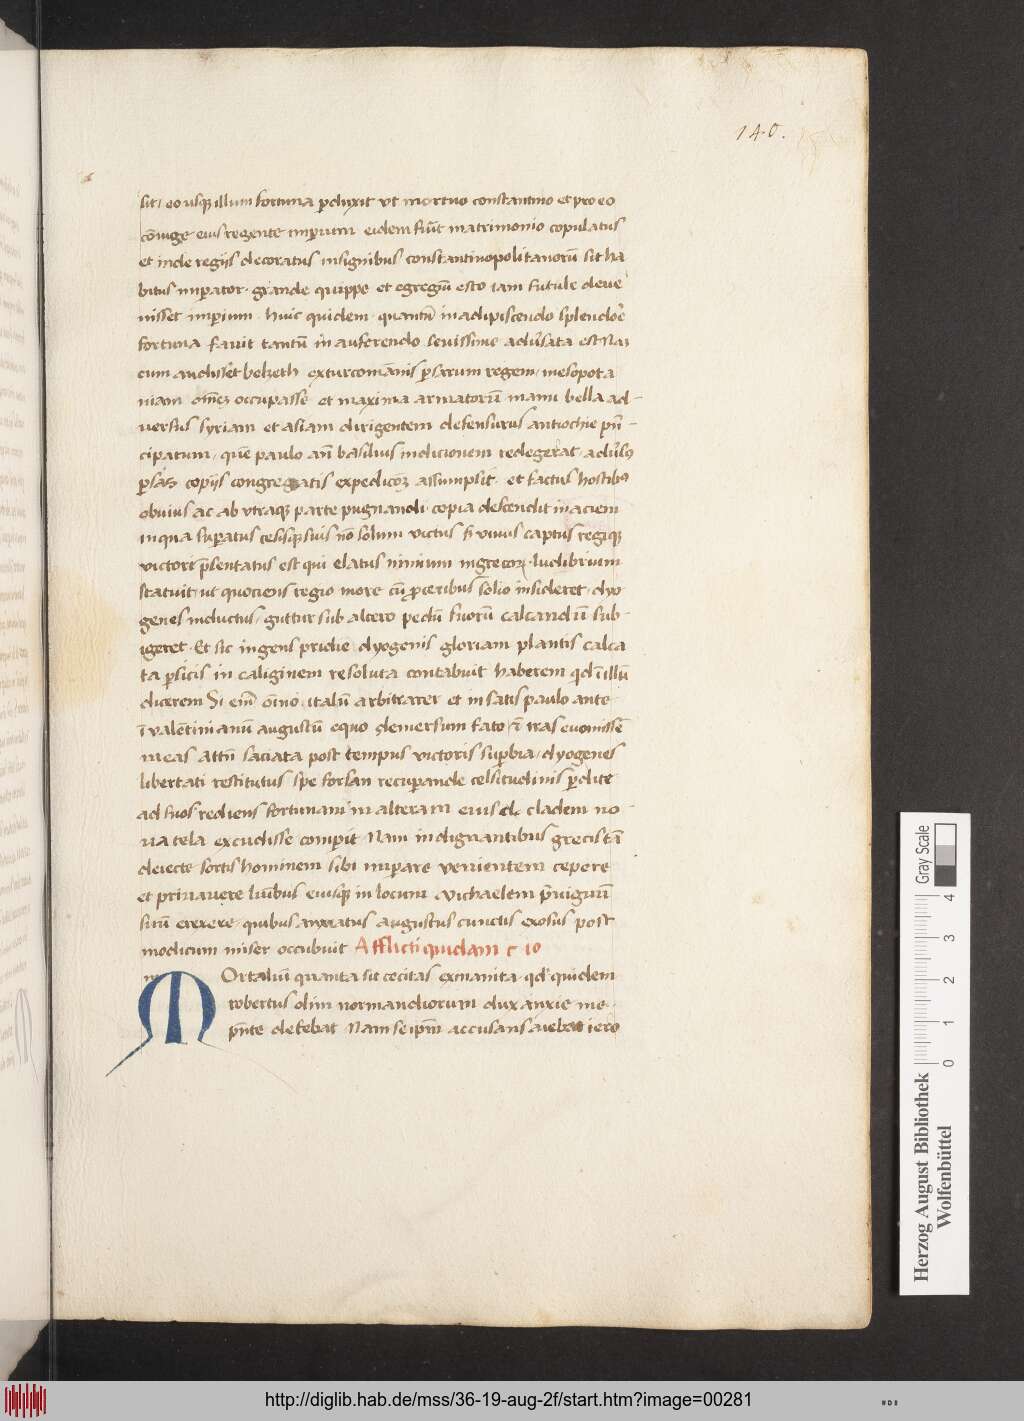 140.
sit, eo usqꝫ illum fortuna ꝑduxit ut mortuo constantino et pro eo
cōiuge eius regente imperium eidem fuit matrimonio copulatus
et inde regijs decoratus insignibus constantinopolitanorū sit ha
bitus imperator. grande quippe et egregiū esto iam futule deue
nisset imperium. huic quidem quantū in adipiscendo splendore
fortuna fauit tantū in auferendo seuissime aduersata est Naꝫ
cum audisset belzeth ex turcomānis persarum regem, mesopota
niam omēꝫ occupasse et maxima armatorū manu bella ad-
uersus syriam et asiam dirigentem defensurus antiochie prin-
cipatum, quē paulo añ basilius in dicionem redegerat, aduersus
persaꝫ copijs congregatis expedicōꝫ assumpsit. et factus hostibus
obuius ac ab utraqꝫ parte pugnandi copia descendit in aciem
in qua superatus cesisqꝫ suis nō solum victus sꝫ viuus captus regiqꝫ
victori p̄sentatus est qui elatus nimium in grecoꝝ ludibrium
statuit ut quociens regio more cū proceribus solio insideret, dyo
genes inductus, guttur sub altero pedū suorū calcandū sub-
igeret. Et sic ingens pridie dyogenis gloriam plantis calca
ta persicis in caliginem resoluta contabuit haberem qd ī illū
dicerem Si eīm oīno italū arbitrarer et in satis paulo ante
ī valentinianū augustū equo demersum fato iras euomisse
meas attñ saciata post tempus victoris superbia, dyogenes
libertati restitutus spe forsan recuperande celsitudinis perdite
ad suos rediens fortunam in alteram eius cladem no
ua tela excudisse comperit Nam indignantibus grecis tā
deiecte sortis hominem sibi imperare venientem cepere
et priuauere luībus eiusqꝫ in locum Michaelem
sirū erexere, quibus augustus cunctis exosus post
modicum miser occubuit Afflicti quidam c 10
MOrtaliū quanta sit cecitas ex inanita, qd quidem
robertus olim normandiorum dux anxie me
p̄nte defebat Nam se ipm̄ accusans aiebat iero
Gray Scale
0 1 2 3 4
Herzog August Bibliothek
Wolfenbüttel
http://diglib.hab.de/mss/36-19-aug-2f/start.htm?image=00281